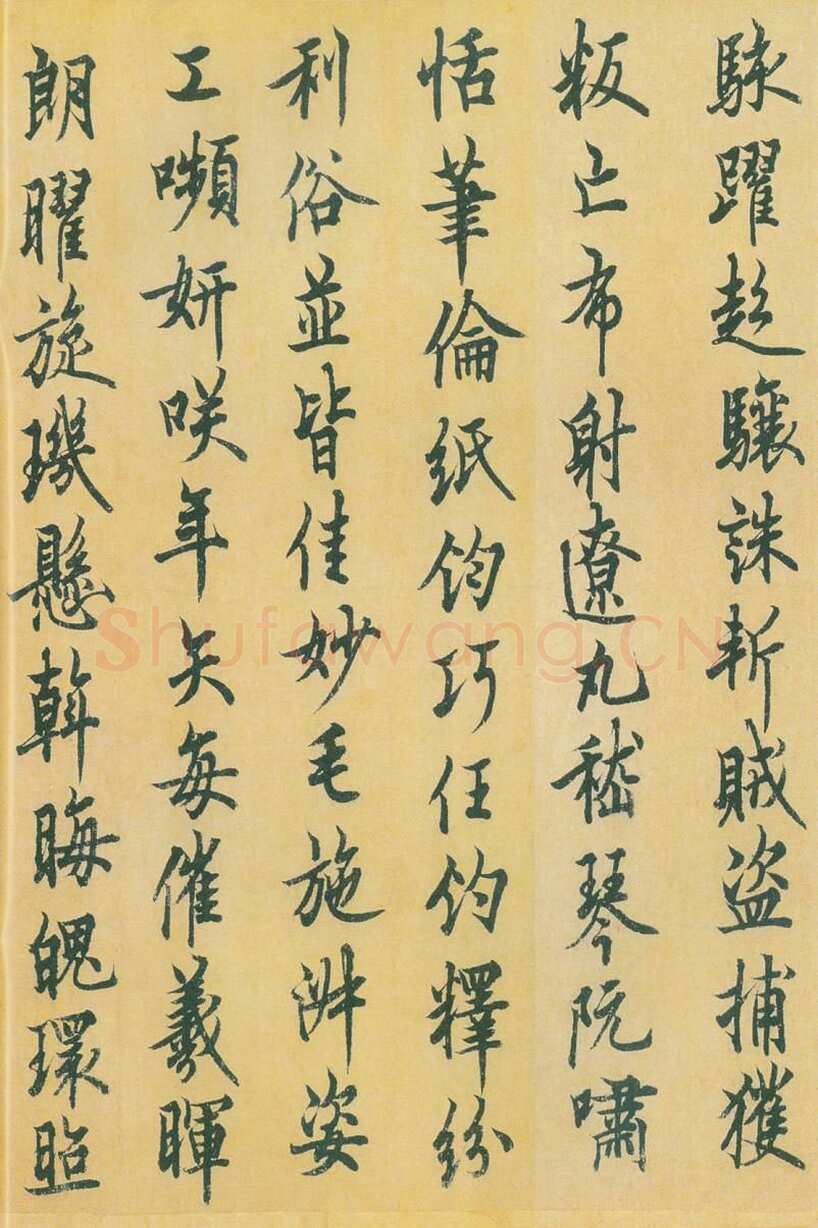 駭躍超驤誅斬賊盜捕獲
叛亡布射遼丸嵇琴阮嘯
恬筆倫紙鈞巧任釣釋紛
利俗並皆佳妙毛施淑姿
工嚬妍咲年矢每催羲暉
朗曜旋璣懸斡晦魄環照
Shufawang.CN